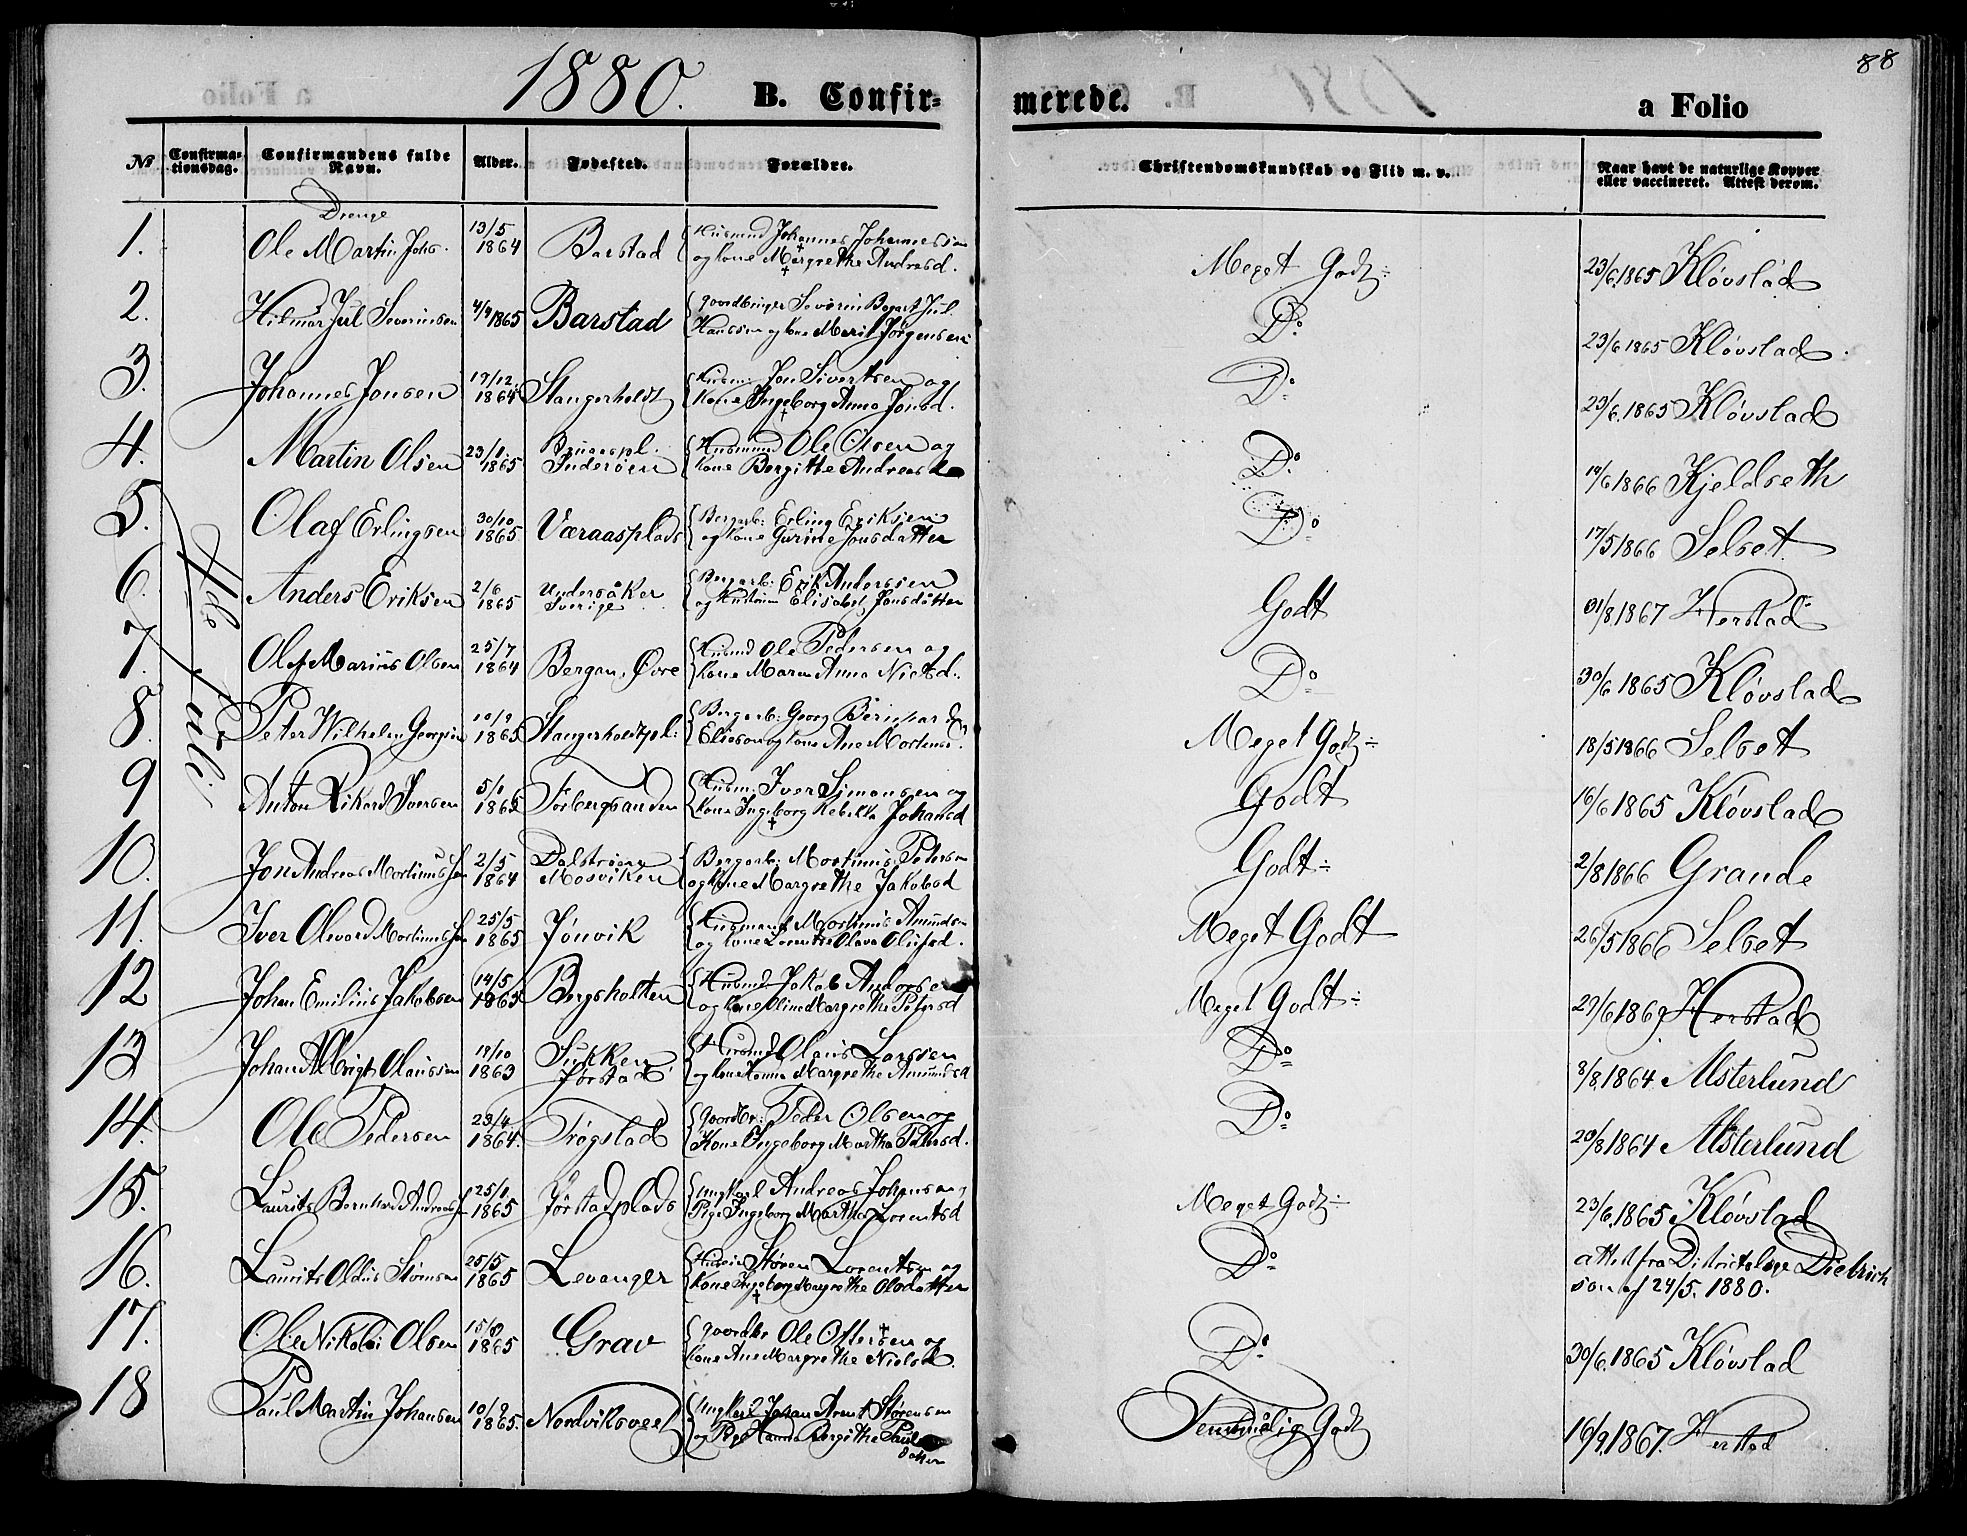 88
1880. B. Confir- merede. a Folio
No Confirma-tionsdag. Confirmandens fulde Navn. Alder. Fødested. Forældre. Christendomskundskab og Flid m. v. Naar havt de naturlige Kopper eller vaccineret. Attest derom.
Drenge
4de Juli
1. Ole Martin Johs. 13/5 1864 Barstad Husmnd Johannes Johannessen og kone Margrethe Andreasd. Meget Godt÷ 23/6 1865 Kløvstad
2. Hilmar Jul Severinsen 4/9 1865 Barstad Severin Jul Hanssen og kone Marit Jörgensen Do 23/6 1865 Kløvstad.
3. Johannes Jonsen 19/12 1864 Stangerholdt Husm: Jon Sivertsen og Kone Ingeborg Anna Jonsd. Do 23/6 1865 Kløvstad
4. Martin Olsen 23/1 1865 Inderøen Husmnd Ole Olsen og kone Bergitte Andreasd Do 1866 Kjeldseth
5. Olaf Erlingsen 30/10 1865 Væraasplads Bergarb: Erling Eriksen og kone Gurine Jonsdatter Do 17/5 1866 Selset
6. Anders Eriksen 2/6 1865 Undersåker Sverige Bergarb: Erik Anderssen og Hustru Elisabet Jonsdatter Godt 31/8 1867 Herstad
7. Ole Marius Olsen 25/7 1864 Bergan Øvre Husmd Ole Pedersen og Kone Maren Anna Nielsd. Do 30/6 1865 Kløvstad
8. Peter Wilhelm Georgsen 10/9 1865 Stangerholdtpl: Bergarb: Georg Bernhard Elieson og kone Ane Mortens. Meget Godt÷ 18/5 1866 Selset
9 Anton Rikard Iversen 5/1 1865 Førbergsanden Husm: Iver Simonsen og Kone Ingeborg Rebekka Johansd Godt 16/6 1865 Kløvstad
10. Jon Andreas Mortinussen 2/5 1864 Dalstrøm Mosviken Bergarb: Mortinus Peterssen og Kone Margrethe Jakobsd Godt÷ 2/8 1866 Grande
11. Iver Olevard Mortinussen 25/5 1865 Jönvik Husmand Mortinus Amundsen og kone Lorentse Olava Olufsd. Meget Godt 26/5 1866 Selset
12 Johan Emilius Jakobsen 14/5 1865 Bergsholten Husmnd Jakob Anderssen og kone Oline Margrethe Petersd Meget Godt÷ 29/6 1869 Herstad
13 Johan Albrigt Olaussen 19/10 1863 Sukken Jørstad Husmnd Olaus Larssen og kone Hanna Margrethe Amundsd Do 8/8 1864 Alsterlund
14. Ole Pedersen 23/4 1864. Trøgstad Gaardbr: Peder Olsen og Kone Ingeborg Martha Petersd. Do 20/8 1864 Alsterlund
15. Laurits Bernhard Andreassen 25/1 1865 Jørstadplads Ungkarl Andreas Johansen og Pige Ingeborg Martha Lorentsd Meget Godt÷ 23/6 1865 Kløvstad
16. Laurits Oldus Stømsen 25/5 1865 Levanger Støren Lorentsen og Kone Ingeborg Margrethe Olsdatter Do attest fra Distriktslæge Dietrichson af 24/5. 1880.
17. Ole Nikolai Olsen 1865 Grav Ole Ottersen og kone Ane Margrethe Nielsd. Do 30/6 1865 Kløvstad
18 Paul Martin Johansen 10/9 1865. Nordviksveet Ungkarl Johan Arent Størensen og Pige Hanna Bergithe Paulsdatter Temmelig Godt 16/9 1867. Herstad